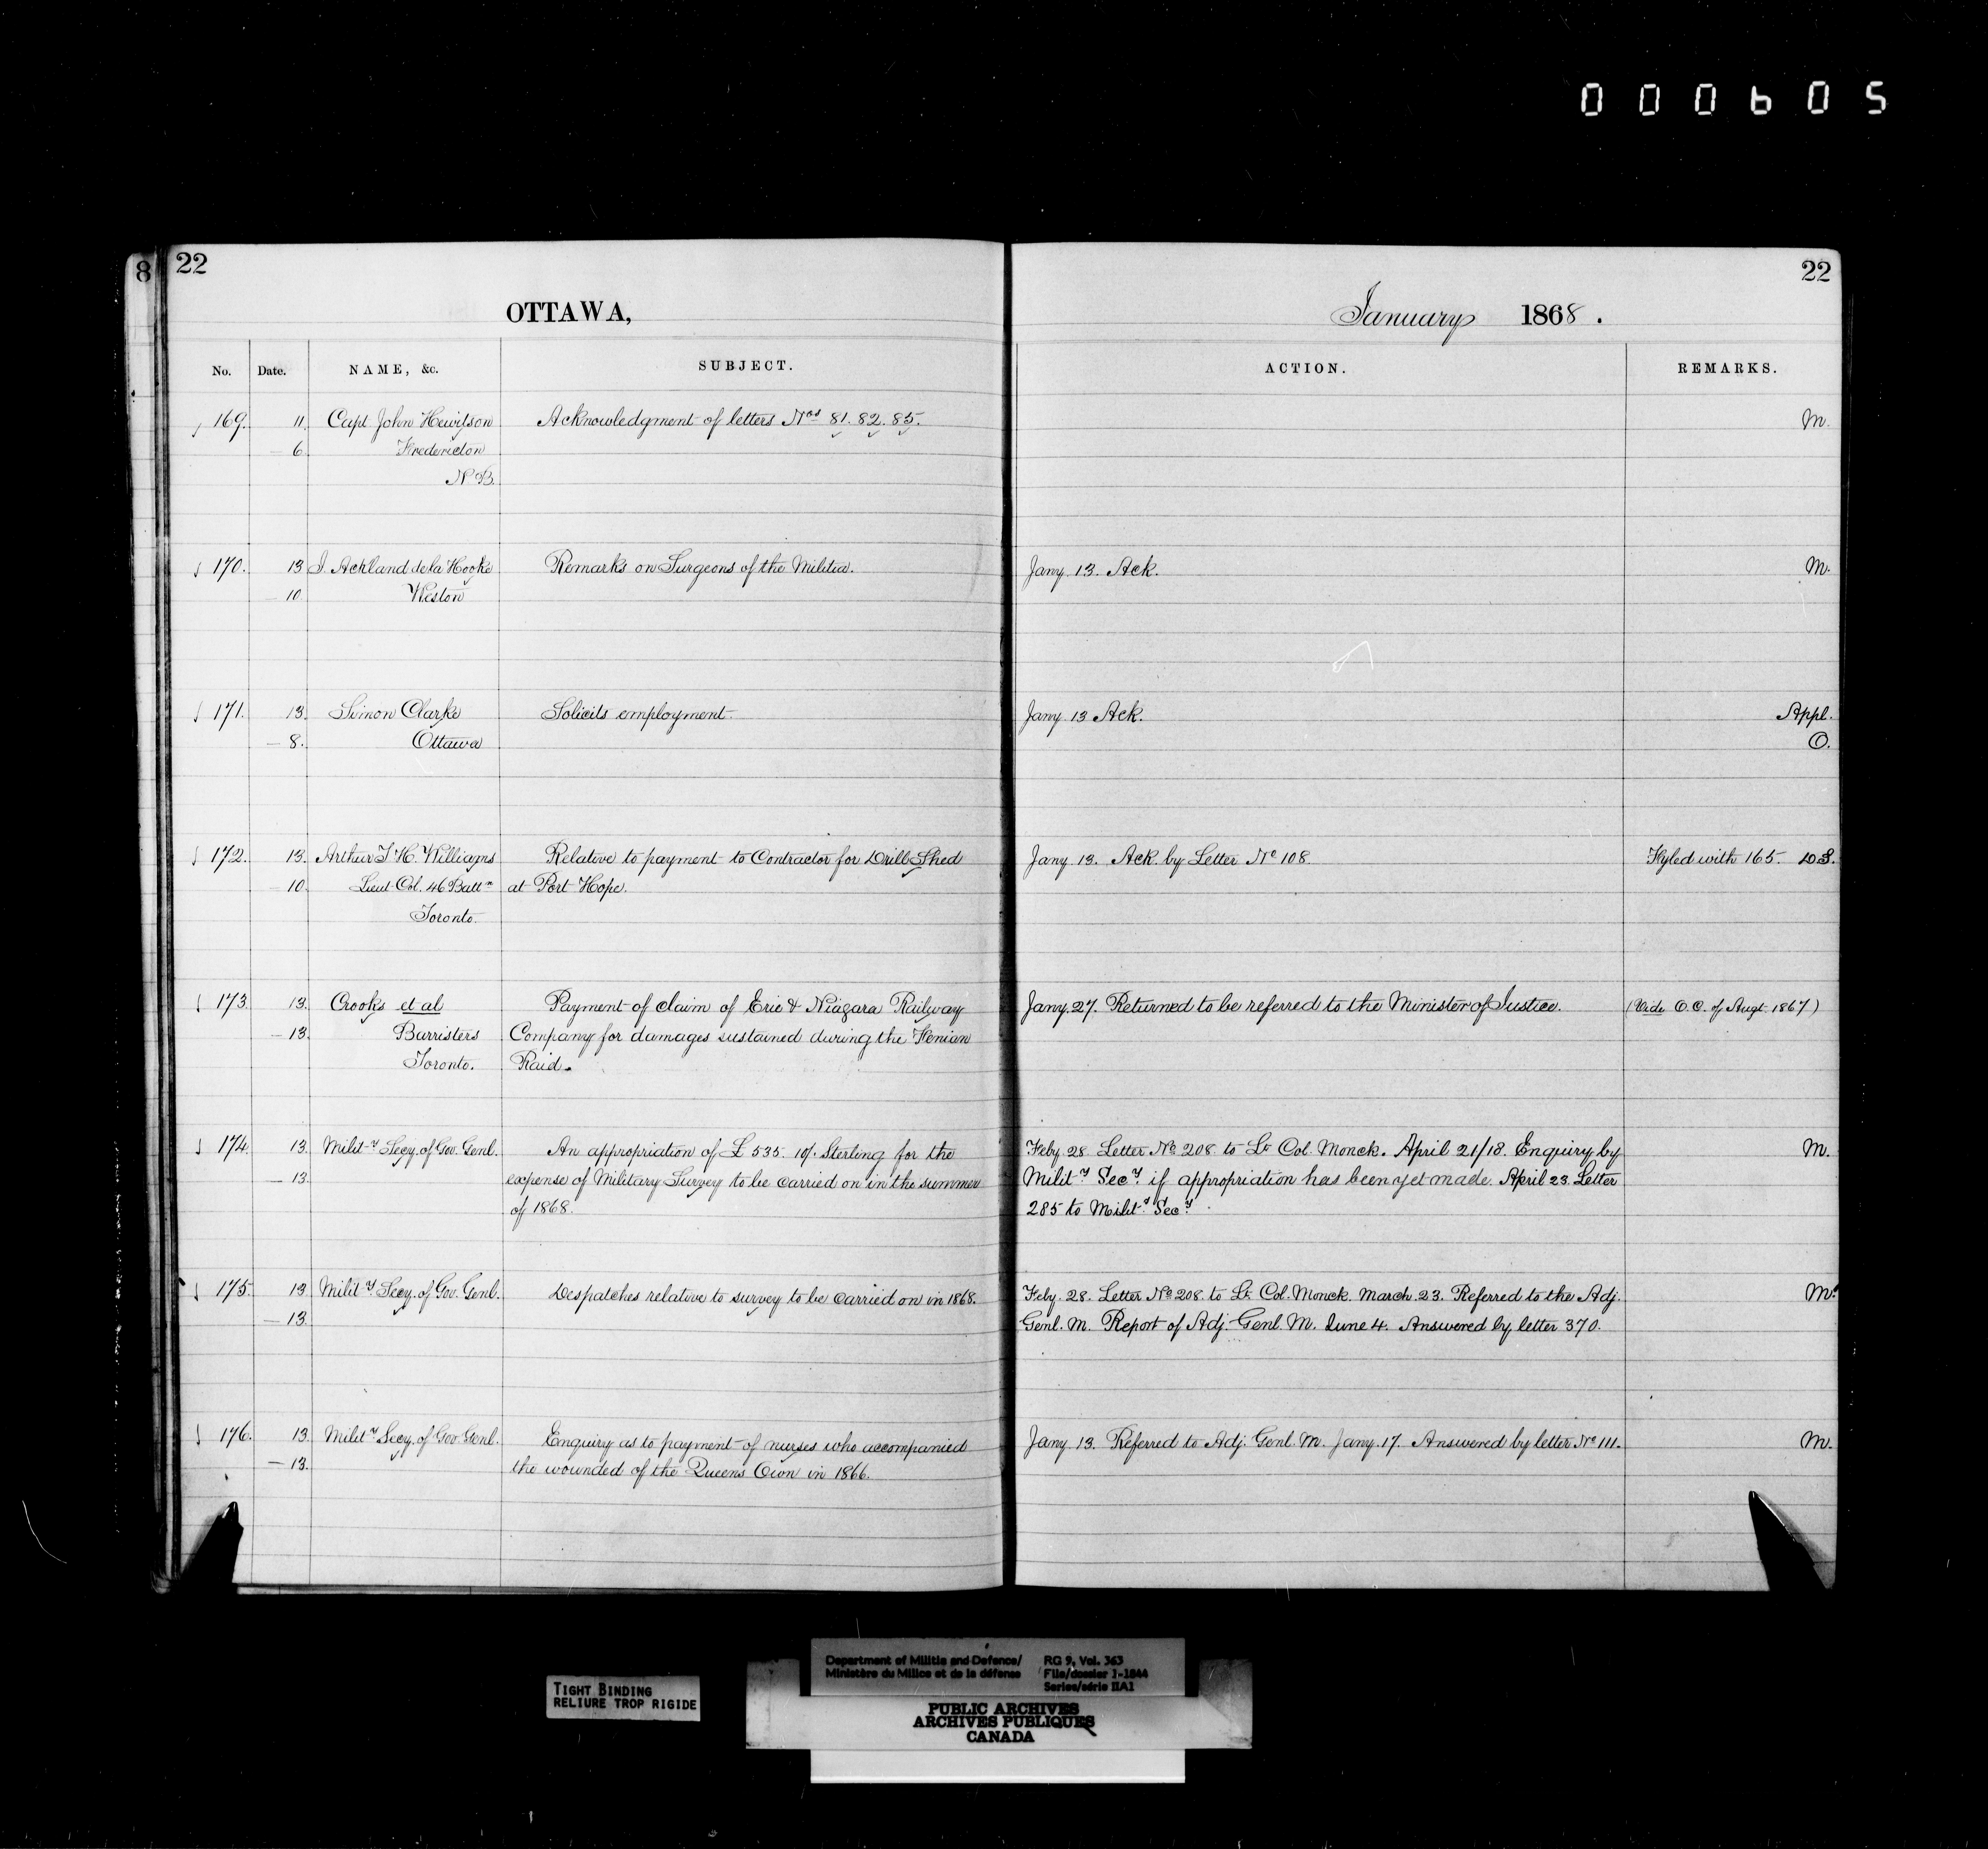 000605
8
22
22
OTTAWA,
January 1868.
No. Date. NAME, &c. SUBJECT. ACTION. REMARKS.
169. 11. Capt John Hewitson Acknowledgment of letters Nos 81. 82. 85. M.
6. Fredericton
N.B.
170. 13 J. Ackland de la Hooke Remarks on Surgeons of the Militia. Jany. 13. Ack. M.
10 Weston
171. 13. Simon Clarke Solicits employment. Jany 13 Ack. Appl.
8. Ottawa O.
172. 13. Arthur T. H. Williams Relative to payment to Contractor for Drill Shed Jany 13. Ack. by Letter No 108 Fyled with 165. D.S.
10. Lieut Col. 46 Battn at Port Hope.
Toronto.
173. 13. Crooks et al Payment of claim of Erie & Niagara Railway Jany. 27. Returned to be referred to the Minister of Justice. (Vide O.C. of Augt. 1867)
13. Barristers Company for damages sustained during the Fenian
Toronto. Raid.
174. 13. Mility Secy. of Gov. Genl. An appropriation of £535. 10/. Sterling for the Feby. 28. Letter No 208 to Lt Col. Monck. April 21/18. Enquiry by M.
13. expense of Military Survey to be carried on in the summer Mility Secy. if appropriation has been yet made. April 23. Letter
of 1868. 285 to Mility Secy.
175. 13 Mility Secy. of Gov. Genl. Despatches relative to survey to be carried on in 1868. Feby. 28. Letter No 208 to Lt. Col. Monck. March 23. Referred to the Adj. M.
13. Genl. M. Report of Adj. Genl. M. June 4. Answered by letter 370.
176. 13. Mility Secy. of Gov. Genl. Enquiry as to payment of nurses who accompanied Jany 13. Referred to Adj. Genl. M. Jany. 17. Answered by letter No 111. M.
13. the wounded of the Queens Own in 1866.
TIGHT BINDING
RELIURE TROP RIGIDE
Department of Militia and Defence/ RG 9, Vol. 363
Ministère du Milice et de la défense File/dossier 1-1844
Series/série IIA1
PUBLIC ARCHIVES
ARCHIVES PUBLIQUES
CANADA